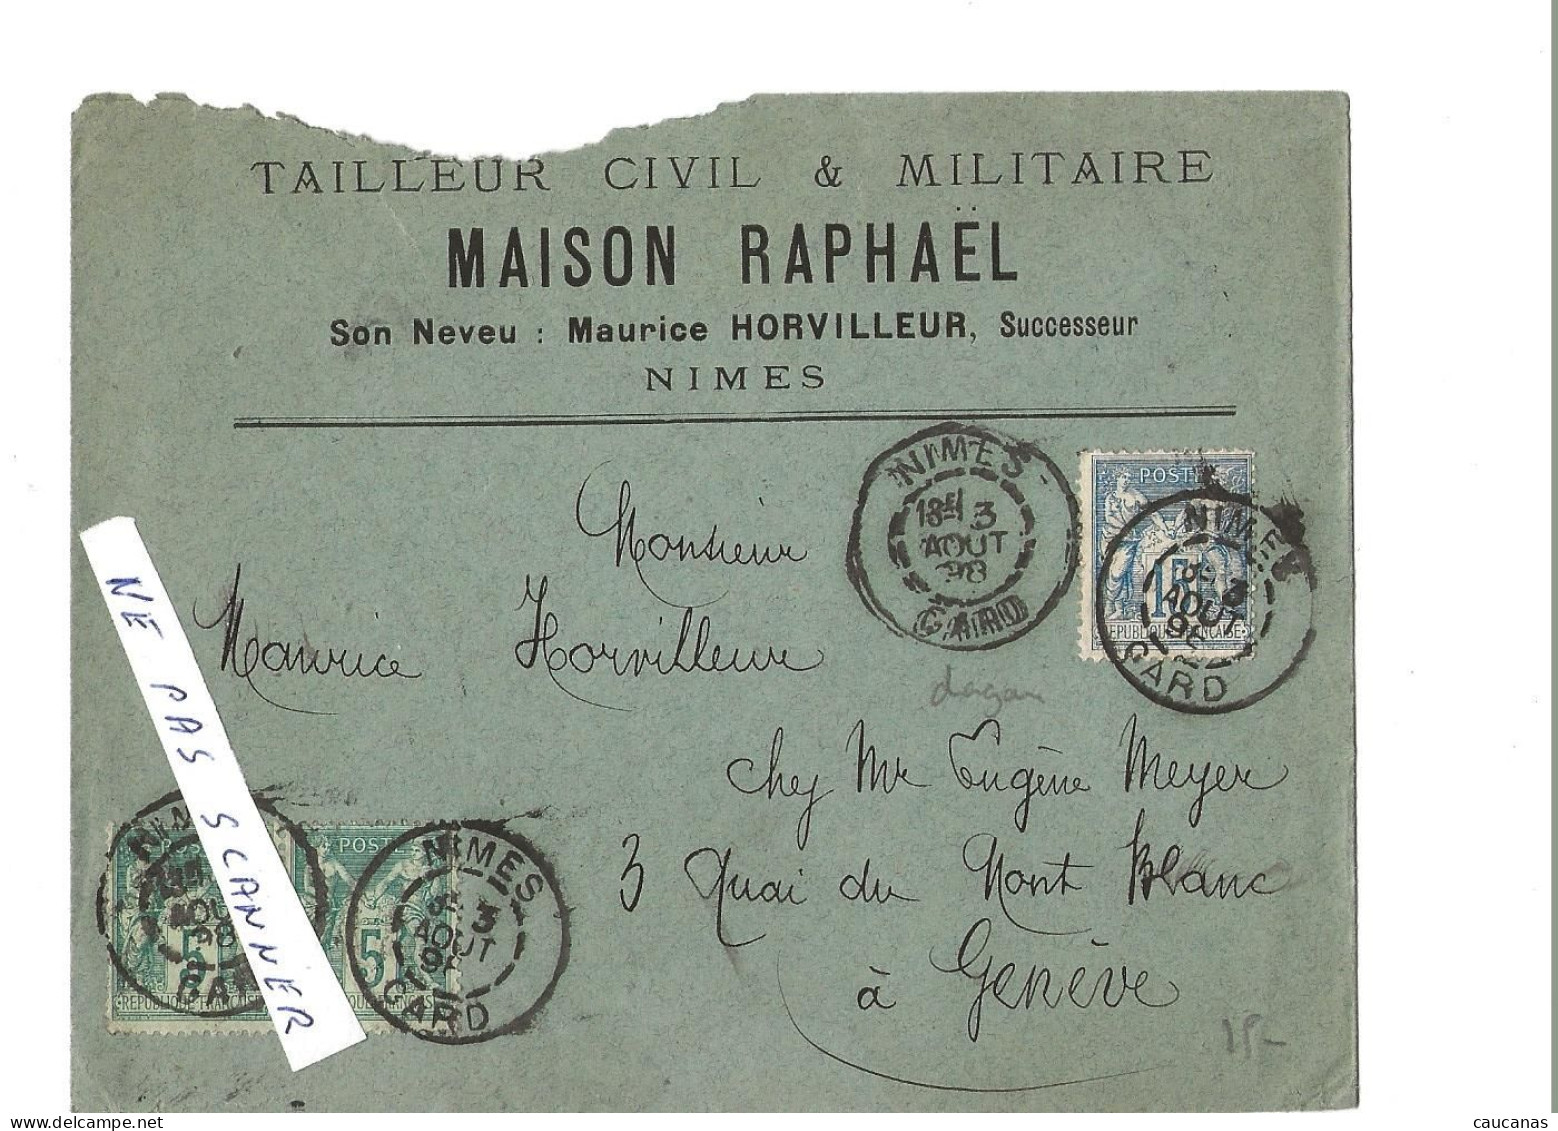 TAILLEUR CIVIL & MILITAIRE
MAISON RAPHAËL
Son Neveu : Maurice HORVILLEUR, Successeur
NIMES
NIMES
18E 3
AOUT
98
GARD
POSTE
15
REPUBLIQUE FRANÇAISE
NIMES
3
AOUT
98
GARD
Monsieur
Maurice Horvilleur
chez Mr Eugène Meyer
3 Quai du Mont Blanc
à Genève
15-
NE PAS SCANNER
5
REPUBLIQUE FRANC
POSTE
5
QUE FRANCAISE
NIMES
3
AOUT
98
GARD
caucanas